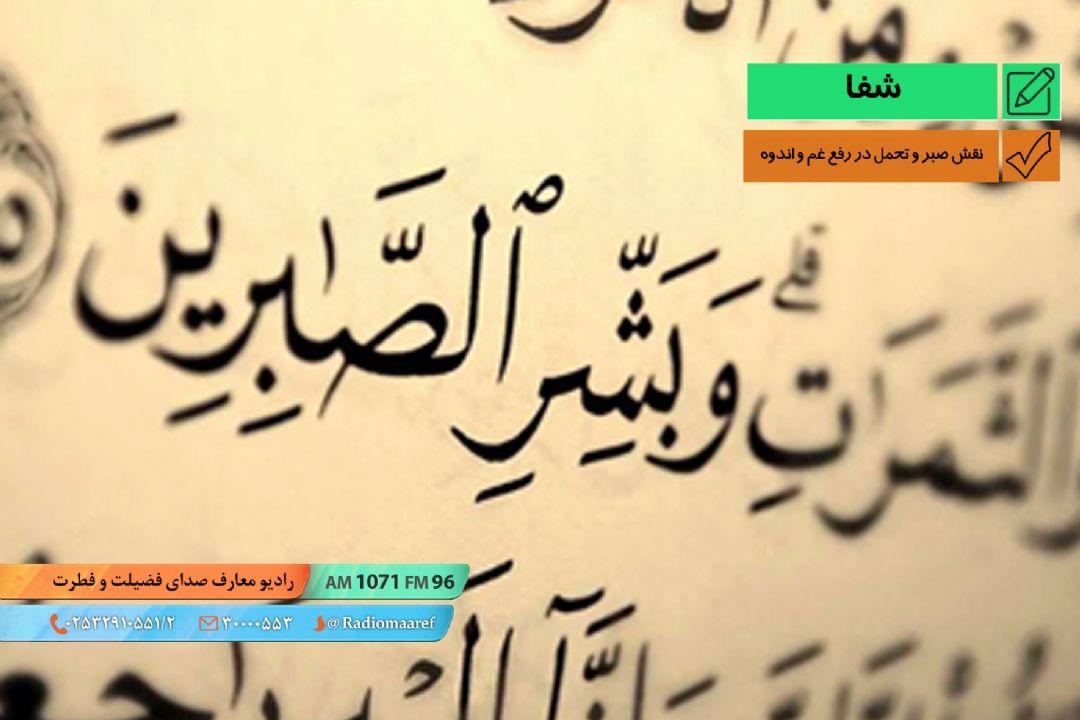 شفا
نقش صبر و تحمل در رفع غم و اندوه
ٱلثَّمَرَٰتِ ۗ وَبَشِّرِ ٱلصَّٰبِرِينَ
رادیو معارف صدای فضیلت و فطرت AM 1071 FM 96
۰۲۵۳۲۹۱۰۵۵۱/۲ ۳۰۰۰۰۵۵۳ @ Radiomaaref